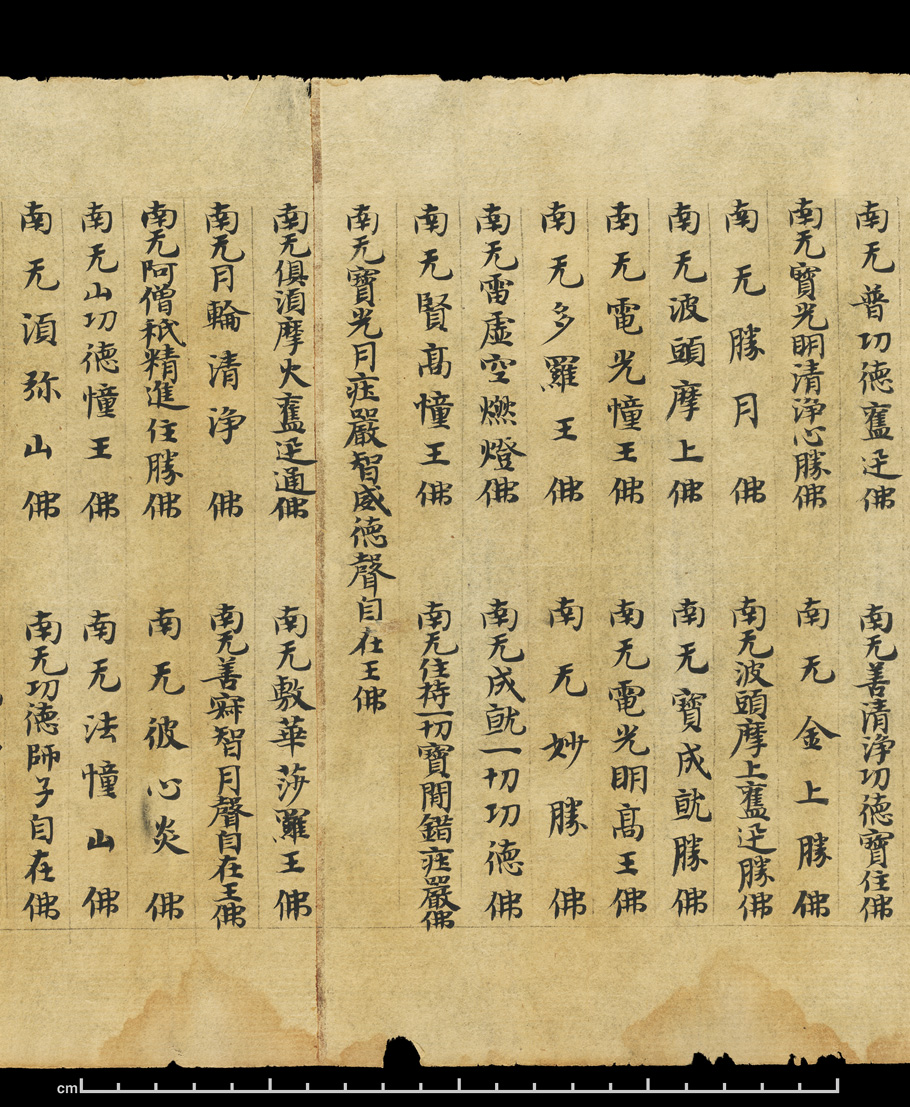 南无普功德奮迅佛 南无善清淨功德寶住佛
南无寶光明清淨心勝佛 南无金上勝佛
南无勝月佛 南无波頭摩上奮迅勝佛
南无波頭摩上佛 南无寶成就勝佛
南无電光幢王佛 南无電光明高王佛
南无多羅王佛 南无妙勝佛
南无雷虛空燃燈佛 南无成就一切功德佛
南无賢高幢王佛 南无住持一切寶閒錯庄嚴佛
南无寶光月庄嚴智威德聲自在王佛
南无俱湏摩火奮迅通佛 南无敷華莎羅王佛
南无月輪清淨佛 南无善寐智月聲自在王佛
南无阿僧祇精進住勝佛 南无彼心炎佛
南无山功德幢王佛 南无法幢山佛
南无湏弥山佛 南无功德師子自在佛
cm